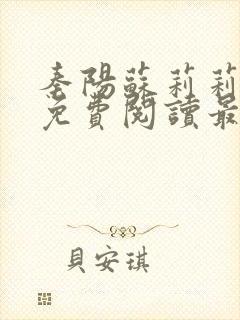 秦陽蘇莉莉
免費閱讀最
貝安琪